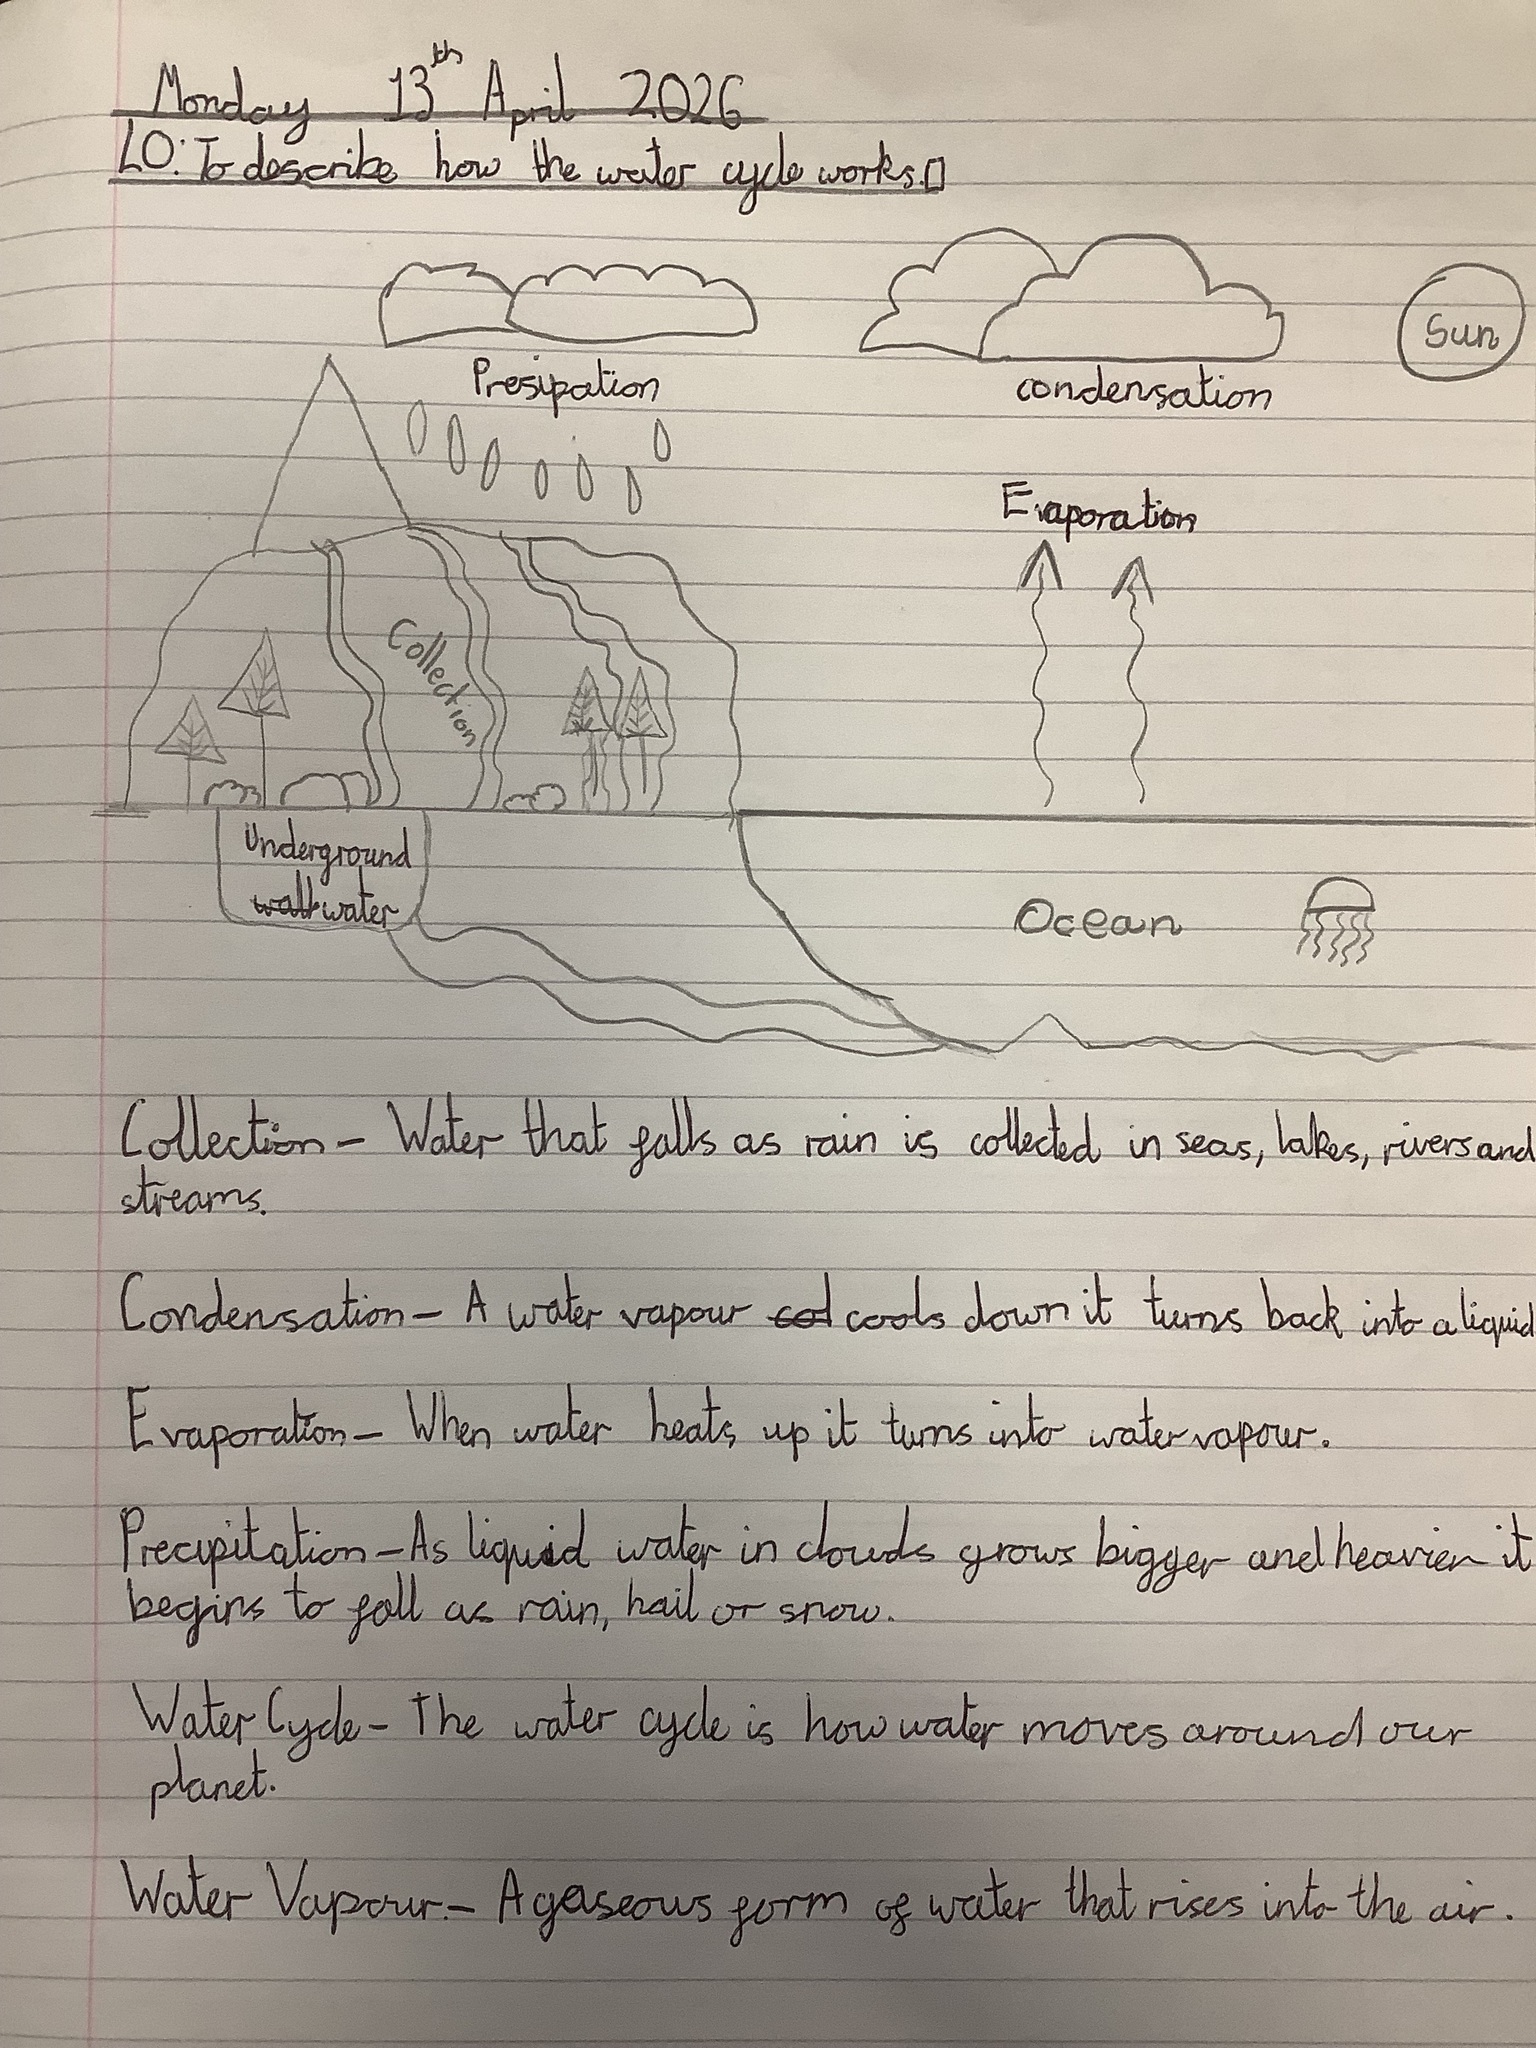 Monday 13th April 2026
LO: To describe how the water cycle works.
Sun
Presipation
condensation
Evaporation
Collection
Underground
water
Ocean
Collection - Water that falls as rain is collected in seas, lakes, rivers and
streams.
Condensation - A water vapour cools down it turns back into a liquid
Evaporation - When water heats up it turns into water vapour.
Precipitation - As liquid water in clouds grows bigger and heavier it
begins to fall as rain, hail or snow.
Water Cycle - The water cycle is how water moves around our
planet.
Water Vapour - A gaseous form of water that rises into the air.